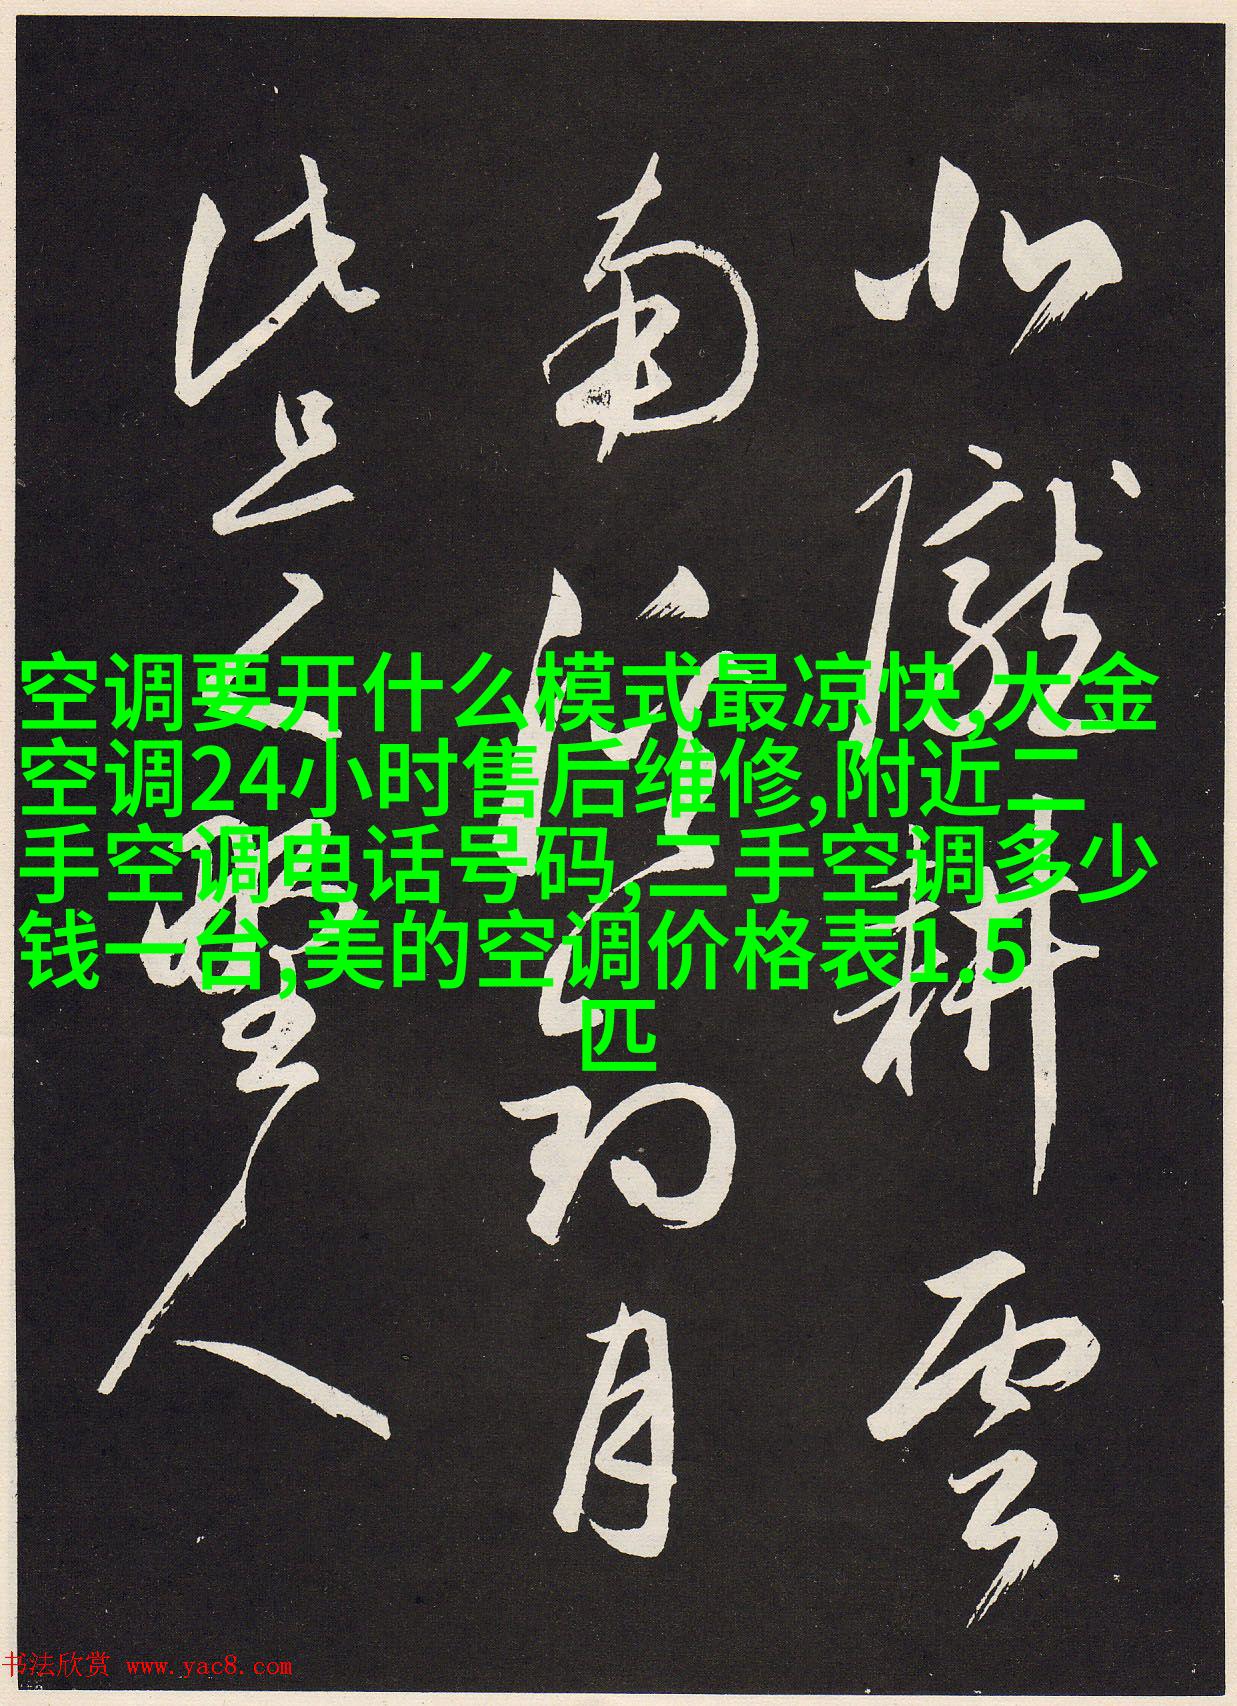 北隴耕雲
南溪釣月
此且人野人
空调要开什么模式最凉快,大金
空调24小时售后维修,附近二
手空调电话号码,二手空调多少
钱一台,美的空调价格表1.5
匹
书法欣赏 www.yac8.com